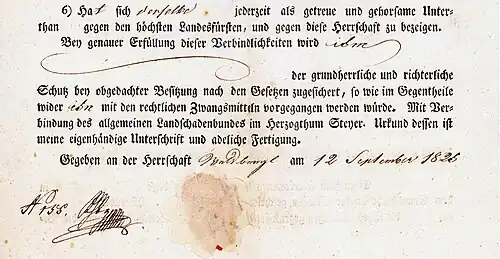 6) Hat sich derselbe jederzeit als getreue und gehorsame Unter-
than gegen den höchsten Landesfürsten, und gegen diese Herrschaft zu bezeigen.
Bey genauer Erfüllung dieser Verbindlichkeiten wird ihm
der grundherrliche und richterliche
Schutz bey obgedachter Besitzung nach den Gesetzen zugesichert, so wie im Gegentheile
wider ihn mit den rechtlichen Zwangsmitteln vorgegangen werden würde. Mit Ver-
bindung des allgemeinen Landschadenbundes im Herzogthum Steyer. Urkund dessen ist
meine eigenhändige Unterschrift und adeliche Fertigung.
Gegeben an der Herrschaft am 12 September 1826
No 155.